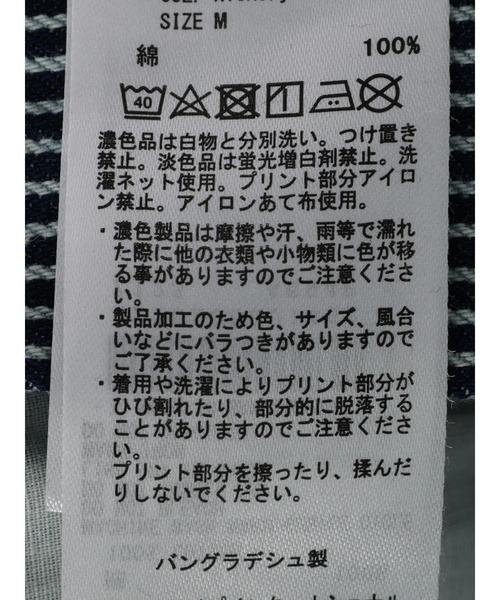 SIZE M
綿 100%
40
濃色品は白物と分別洗い。つけ置き
禁止。淡色品は蛍光増白剤禁止。洗
濯ネット使用。プリント部分アイロ
ン禁止。アイロンあて布使用。
・濃色製品は摩擦や汗、雨等で濡れ
た際に他の衣類や小物類に色が移
る事がありますのでご注意くださ
い。
・製品加工のため色、サイズ、風合
いなどにバラつきがありますので
ご了承ください。
・着用や洗濯によりプリント部分が
ひび割れたり、部分的に脱落する
ことがありますのでご注意くださ
い。
プリント部分を擦ったり、揉んだ
りしないでください。
バングラデシュ製